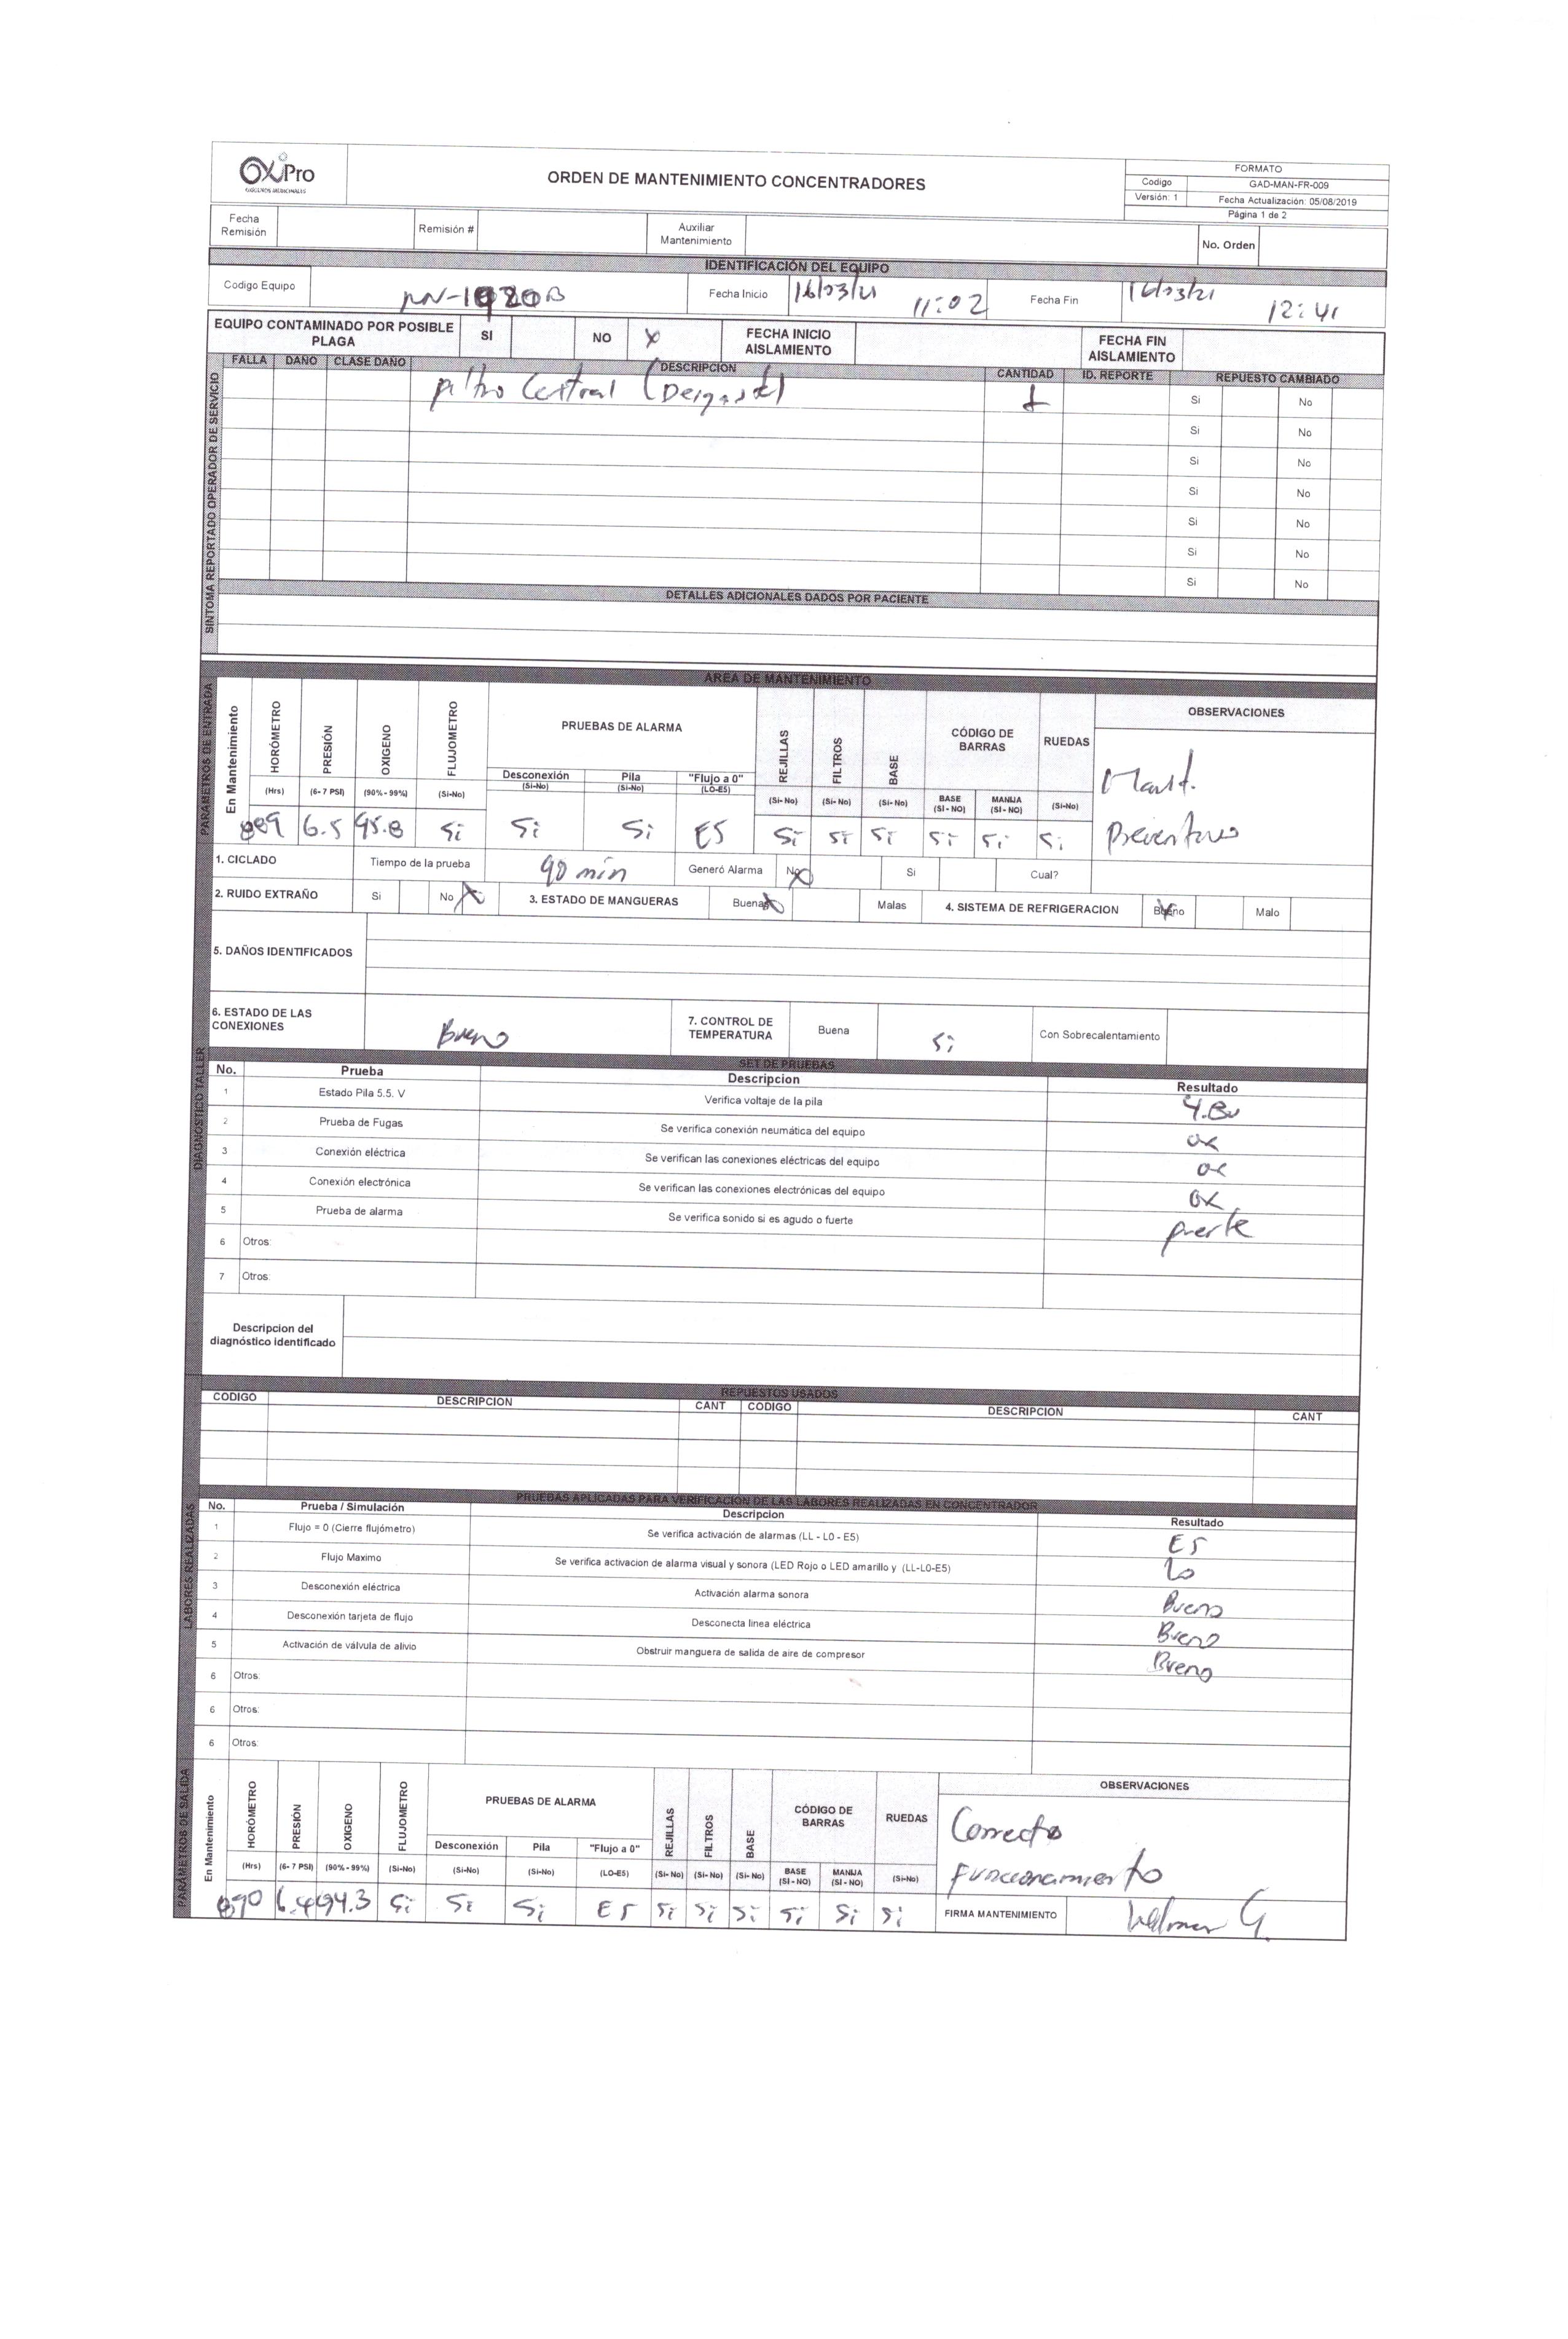 OXiPro
OXÍGENOS MEDICINALES
ORDEN DE MANTENIMIENTO CONCENTRADORES
FORMATO
Codigo GAD-MAN-FR-009
Versión: 1 Fecha Actualización: 05/08/2019
Página 1 de 2
Fecha Remisión Remisión # Auxiliar Mantenimiento No. Orden
IDENTIFICACIÓN DEL EQUIPO
Codigo Equipo Fecha Inicio 16/03/21 11:02 Fecha Fin 16/03/21 12:41
EQUIPO CONTAMINADO POR POSIBLE PLAGA SI NO X FECHA INICIO AISLAMIENTO FECHA FIN AISLAMIENTO
SINTOMA REPORTADO OPERADOR DE SERVICIO
FALLA DAÑO CLASE DAÑO DESCRIPCION CANTIDAD ID. REPORTE REPUESTO CAMBIADO
Filtro Central (Desgaste) 1 Si No
Si No
Si No
Si No
Si No
Si No
Si No
DETALLES ADICIONALES DADOS POR PACIENTE
AREA DE MANTENIMIENTO
PARAMETROS DE ENTRADA
En Mantenimiento HORÓMETRO PRESIÓN OXIGENO FLUJOMETRO PRUEBAS DE ALARMA REJILLAS FILTROS BASE CÓDIGO DE BARRAS RUEDAS OBSERVACIONES
Desconexión Pila "Flujo a 0"
(Hrs) (6- 7 PSI) (90% - 99%) (Si-No) (Si-No) (Si-No) (LO-E5) (Si- No) (Si- No) (Si- No) BASE (SI - NO) MANIJA (SI - NO) (Si-No)
889 6.5 95.8 Si Si Si E5 Si Si Si Si Si Si
Mant.
Preventivo
DIAGNOSTICO TALLER
1. CICLADO Tiempo de la prueba 90 min Generó Alarma No X Si Cual?
2. RUIDO EXTRAÑO Si No X 3. ESTADO DE MANGUERAS Buenas X Malas 4. SISTEMA DE REFRIGERACION Bueno X Malo
5. DAÑOS IDENTIFICADOS
6. ESTADO DE LAS CONEXIONES Bueno 7. CONTROL DE TEMPERATURA Buena Si Con Sobrecalentamiento
SET DE PRUEBAS
No. Prueba Descripcion Resultado
1 Estado Pila 5.5. V Verifica voltaje de la pila 4.8v
2 Prueba de Fugas Se verifica conexión neumática del equipo ok
3 Conexión eléctrica Se verifican las conexiones eléctricas del equipo ok
4 Conexión electrónica Se verifican las conexiones electrónicas del equipo ok
5 Prueba de alarma Se verifica sonido si es agudo o fuerte fuerte
6 Otros:
7 Otros:
Descripcion del diagnóstico identificado
LABORES REALIZADAS
REPUESTOS USADOS
CODIGO DESCRIPCION CANT CODIGO DESCRIPCION CANT
PRUEBAS APLICADAS PARA VERIFICACION DE LAS LABORES REALIZADAS EN CONCENTRADOR
No. Prueba / Simulación Descripcion Resultado
1 Flujo = 0 (Cierre flujómetro) Se verifica activación de alarmas (LL - L0 - E5) E5
2 Flujo Maximo Se verifica activacion de alarma visual y sonora (LED Rojo o LED amarillo y (LL-L0-E5) Lo
3 Desconexión eléctrica Activación alarma sonora Bueno
4 Desconexión tarjeta de flujo Desconecta linea eléctrica Bueno
5 Activación de válvula de alivio Obstruir manguera de salida de aire de compresor Bueno
6 Otros:
6 Otros:
6 Otros:
PARÁMETROS DE SALIDA
En Mantenimiento HORÓMETRO PRESIÓN OXIGENO FLUJOMETRO PRUEBAS DE ALARMA REJILLAS FILTROS BASE CÓDIGO DE BARRAS RUEDAS OBSERVACIONES
Desconexión Pila "Flujo a 0"
(Hrs) (6- 7 PSI) (90% - 99%) (Si-No) (Si-No) (Si-No) (LO-E5) (Si- No) (Si- No) (Si- No) BASE (SI - NO) MANIJA (SI - NO) (Si-No)
Correcto
Funcionamiento
890 6.4 94.3 Si Si Si E5 Si Si Si Si Si Si FIRMA MANTENIMIENTO